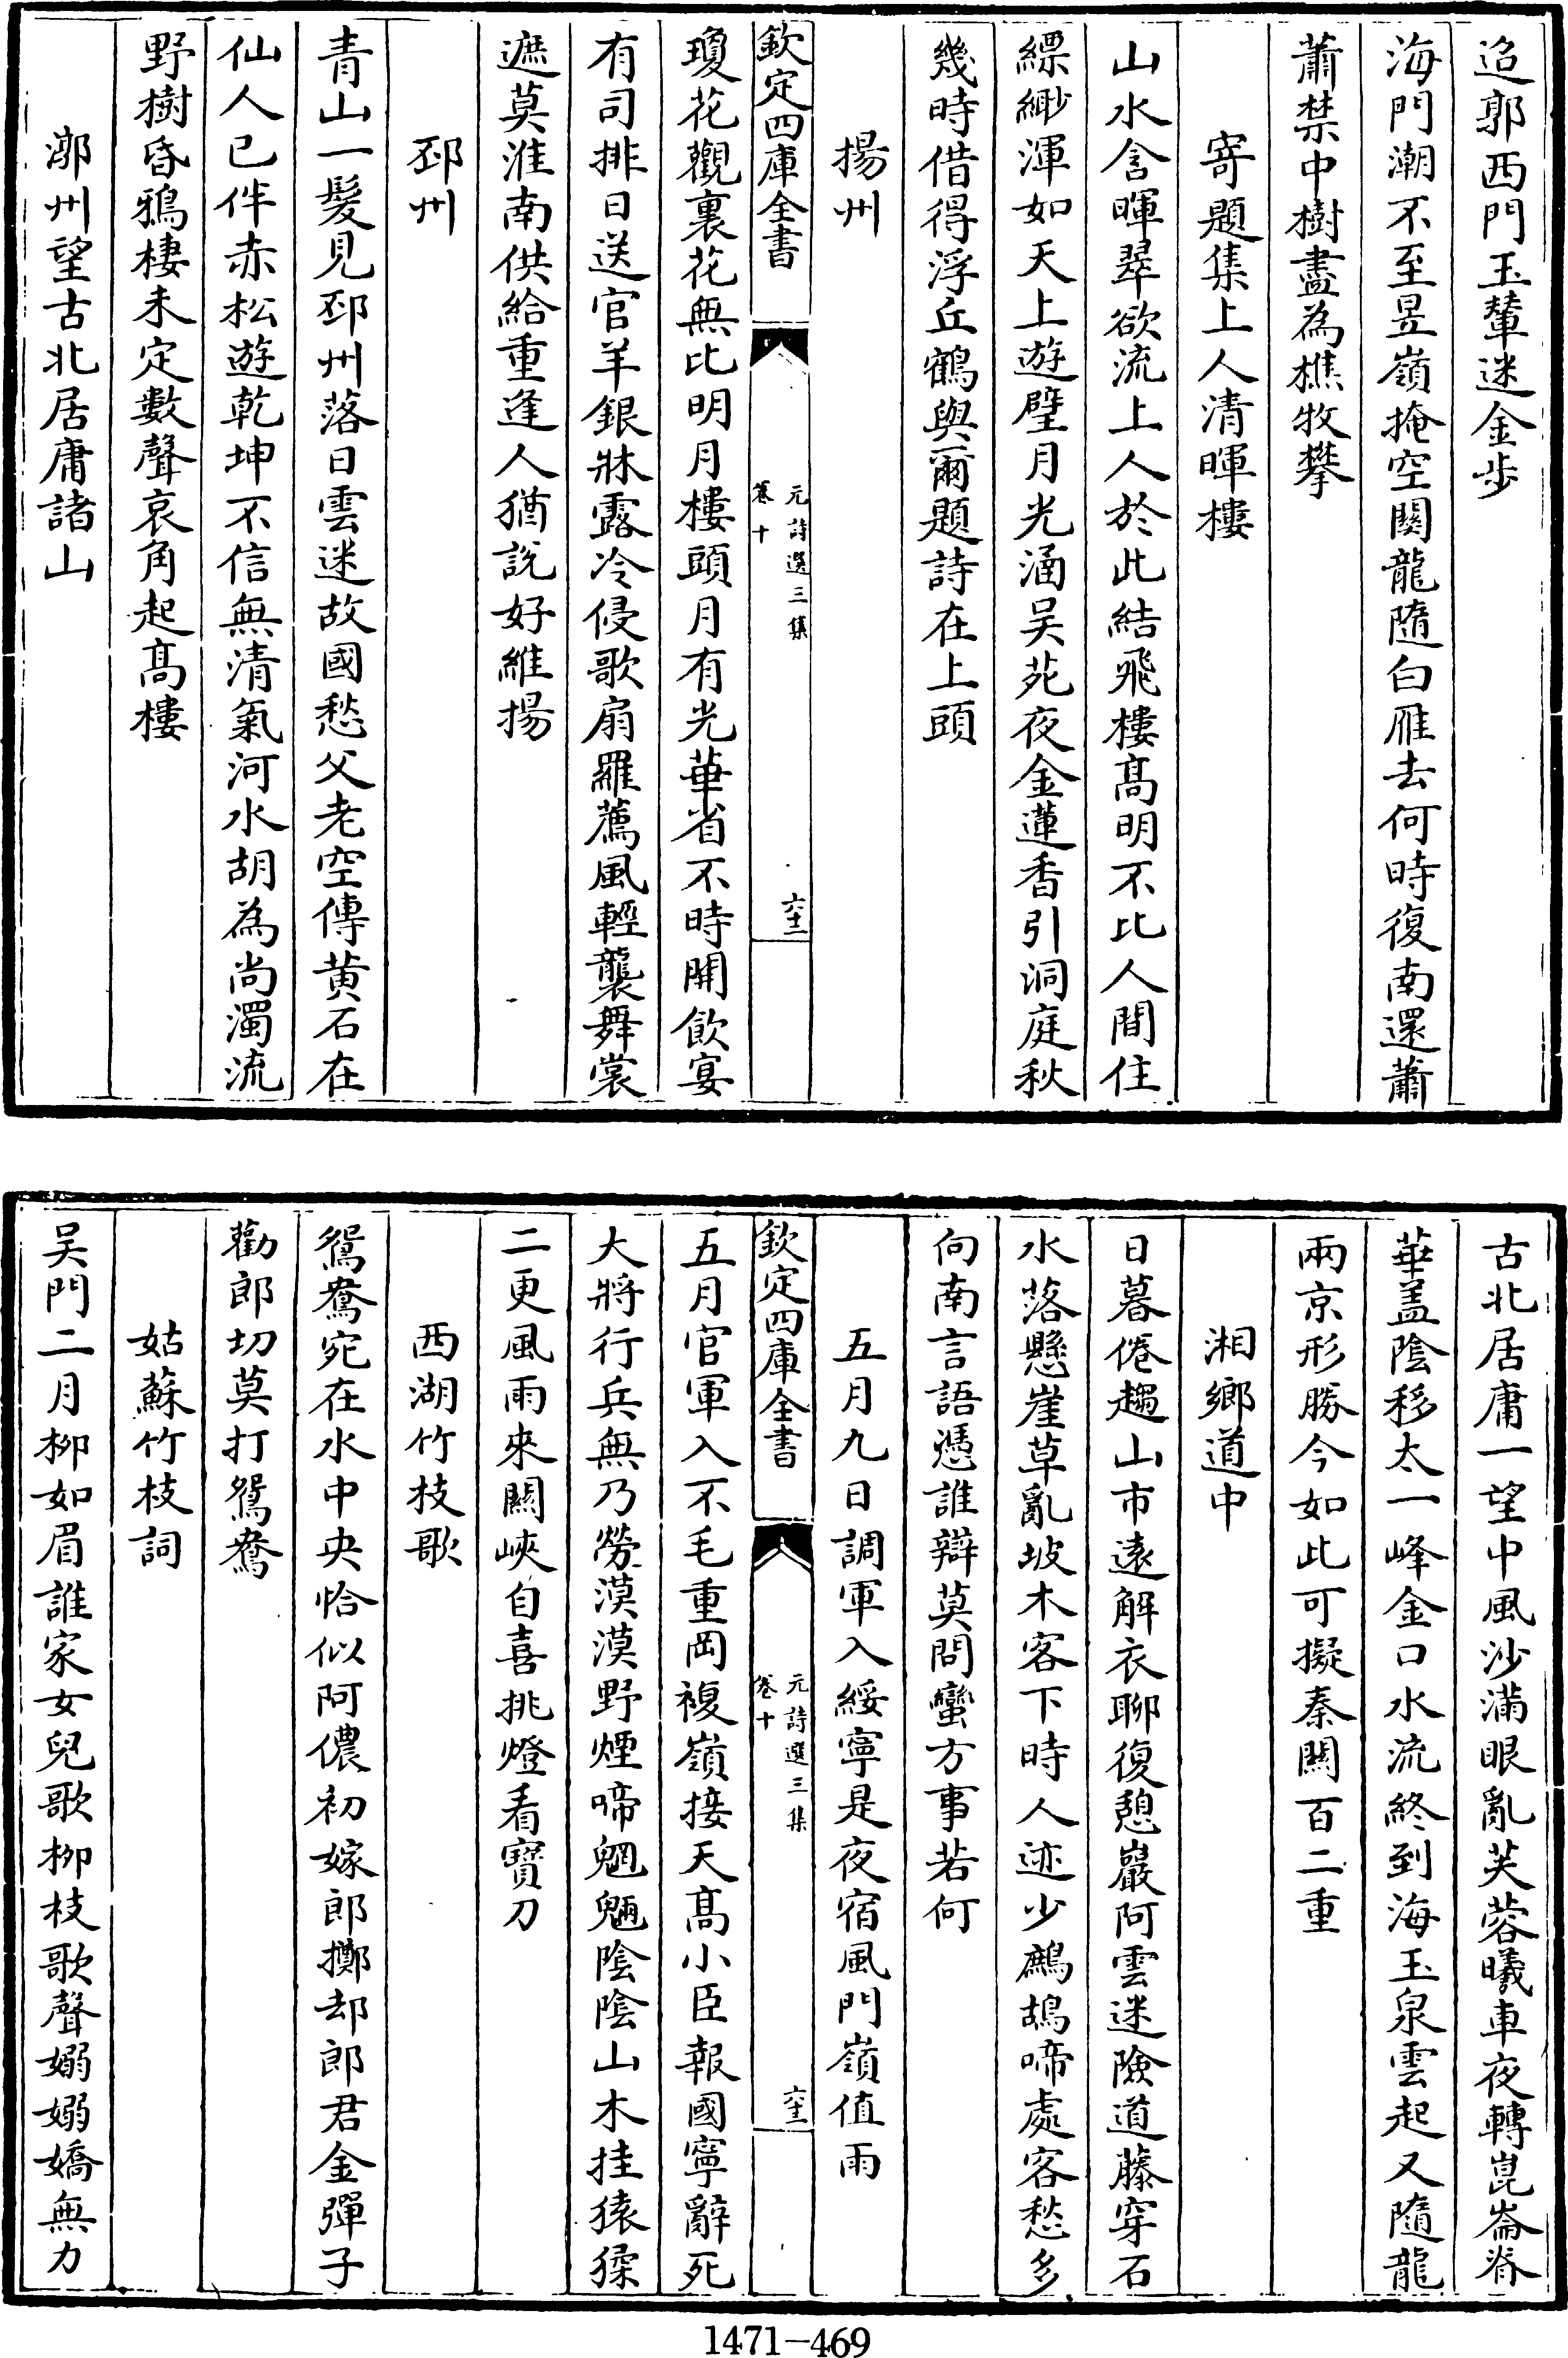 迢郭西門玉輦迷金步
海門潮不至昱嶺掩空關龍隨白雁去何時復南還蕭
蕭禁中樹盡為樵牧攀
寄題集上人清暉樓
山水含暉翠欲流上人於此結飛樓髙明不比人間住
縹緲渾如天上遊璧月光涵吴苑夜金蓮香引洞庭秋
幾時借得浮丘鶴與爾題詩在上頭
揚州
欽定四庫全書
元詩選三集
卷十
六十二
瓊花觀裏花無比明月樓頭月有光華省不時開飲宴
有司排日送官羊銀牀露冷侵歌扇羅薦風輕襲舞裳
遮莫淮南供給重逢人猶説好維揚
邳州
青山一髮見邳州落日雲迷故國愁父老空傳黄石在
仙人已伴赤松遊乾坤不信無清氣河水胡為尚濁流
野樹昏鴉棲未定數聲哀角起髙樓
漷州望古北居庸諸山
古北居庸一望中風沙滿眼亂芙蓉曦車夜轉崑崙脊
華盖陰移太一峰金口水流終到海玉泉雲起又隨龍
兩京形勝今如此可擬秦關百二重
湘鄉道中
日暮倦趨山市遠解衣聊復憩巖阿雲迷險道藤穿石
水落懸崖草亂坡木客下時人迹少鷓鴣啼處客愁多
向南言語憑誰辯莫問蠻方事若何
五月九日調軍入綏寧是夜宿風門嶺值雨
欽定四庫全書
元詩選三集
卷十
六十二
五月官軍入不毛重岡複嶺接天髙小臣報國寧辭死
大將行兵無乃勞漠漠野煙啼魍魎陰陰山木挂猿猱
二更風雨來關峽自喜挑燈看寶刀
西湖竹枝歌
鴛鴦宛在水中央恰似阿儂初嫁郎擲却郎君金彈子
勸郎切莫打鴛鴦
姑蘇竹枝詞
吴門二月柳如眉誰家女兒歌柳枝歌聲嫋嫋嬌無力
1471-469